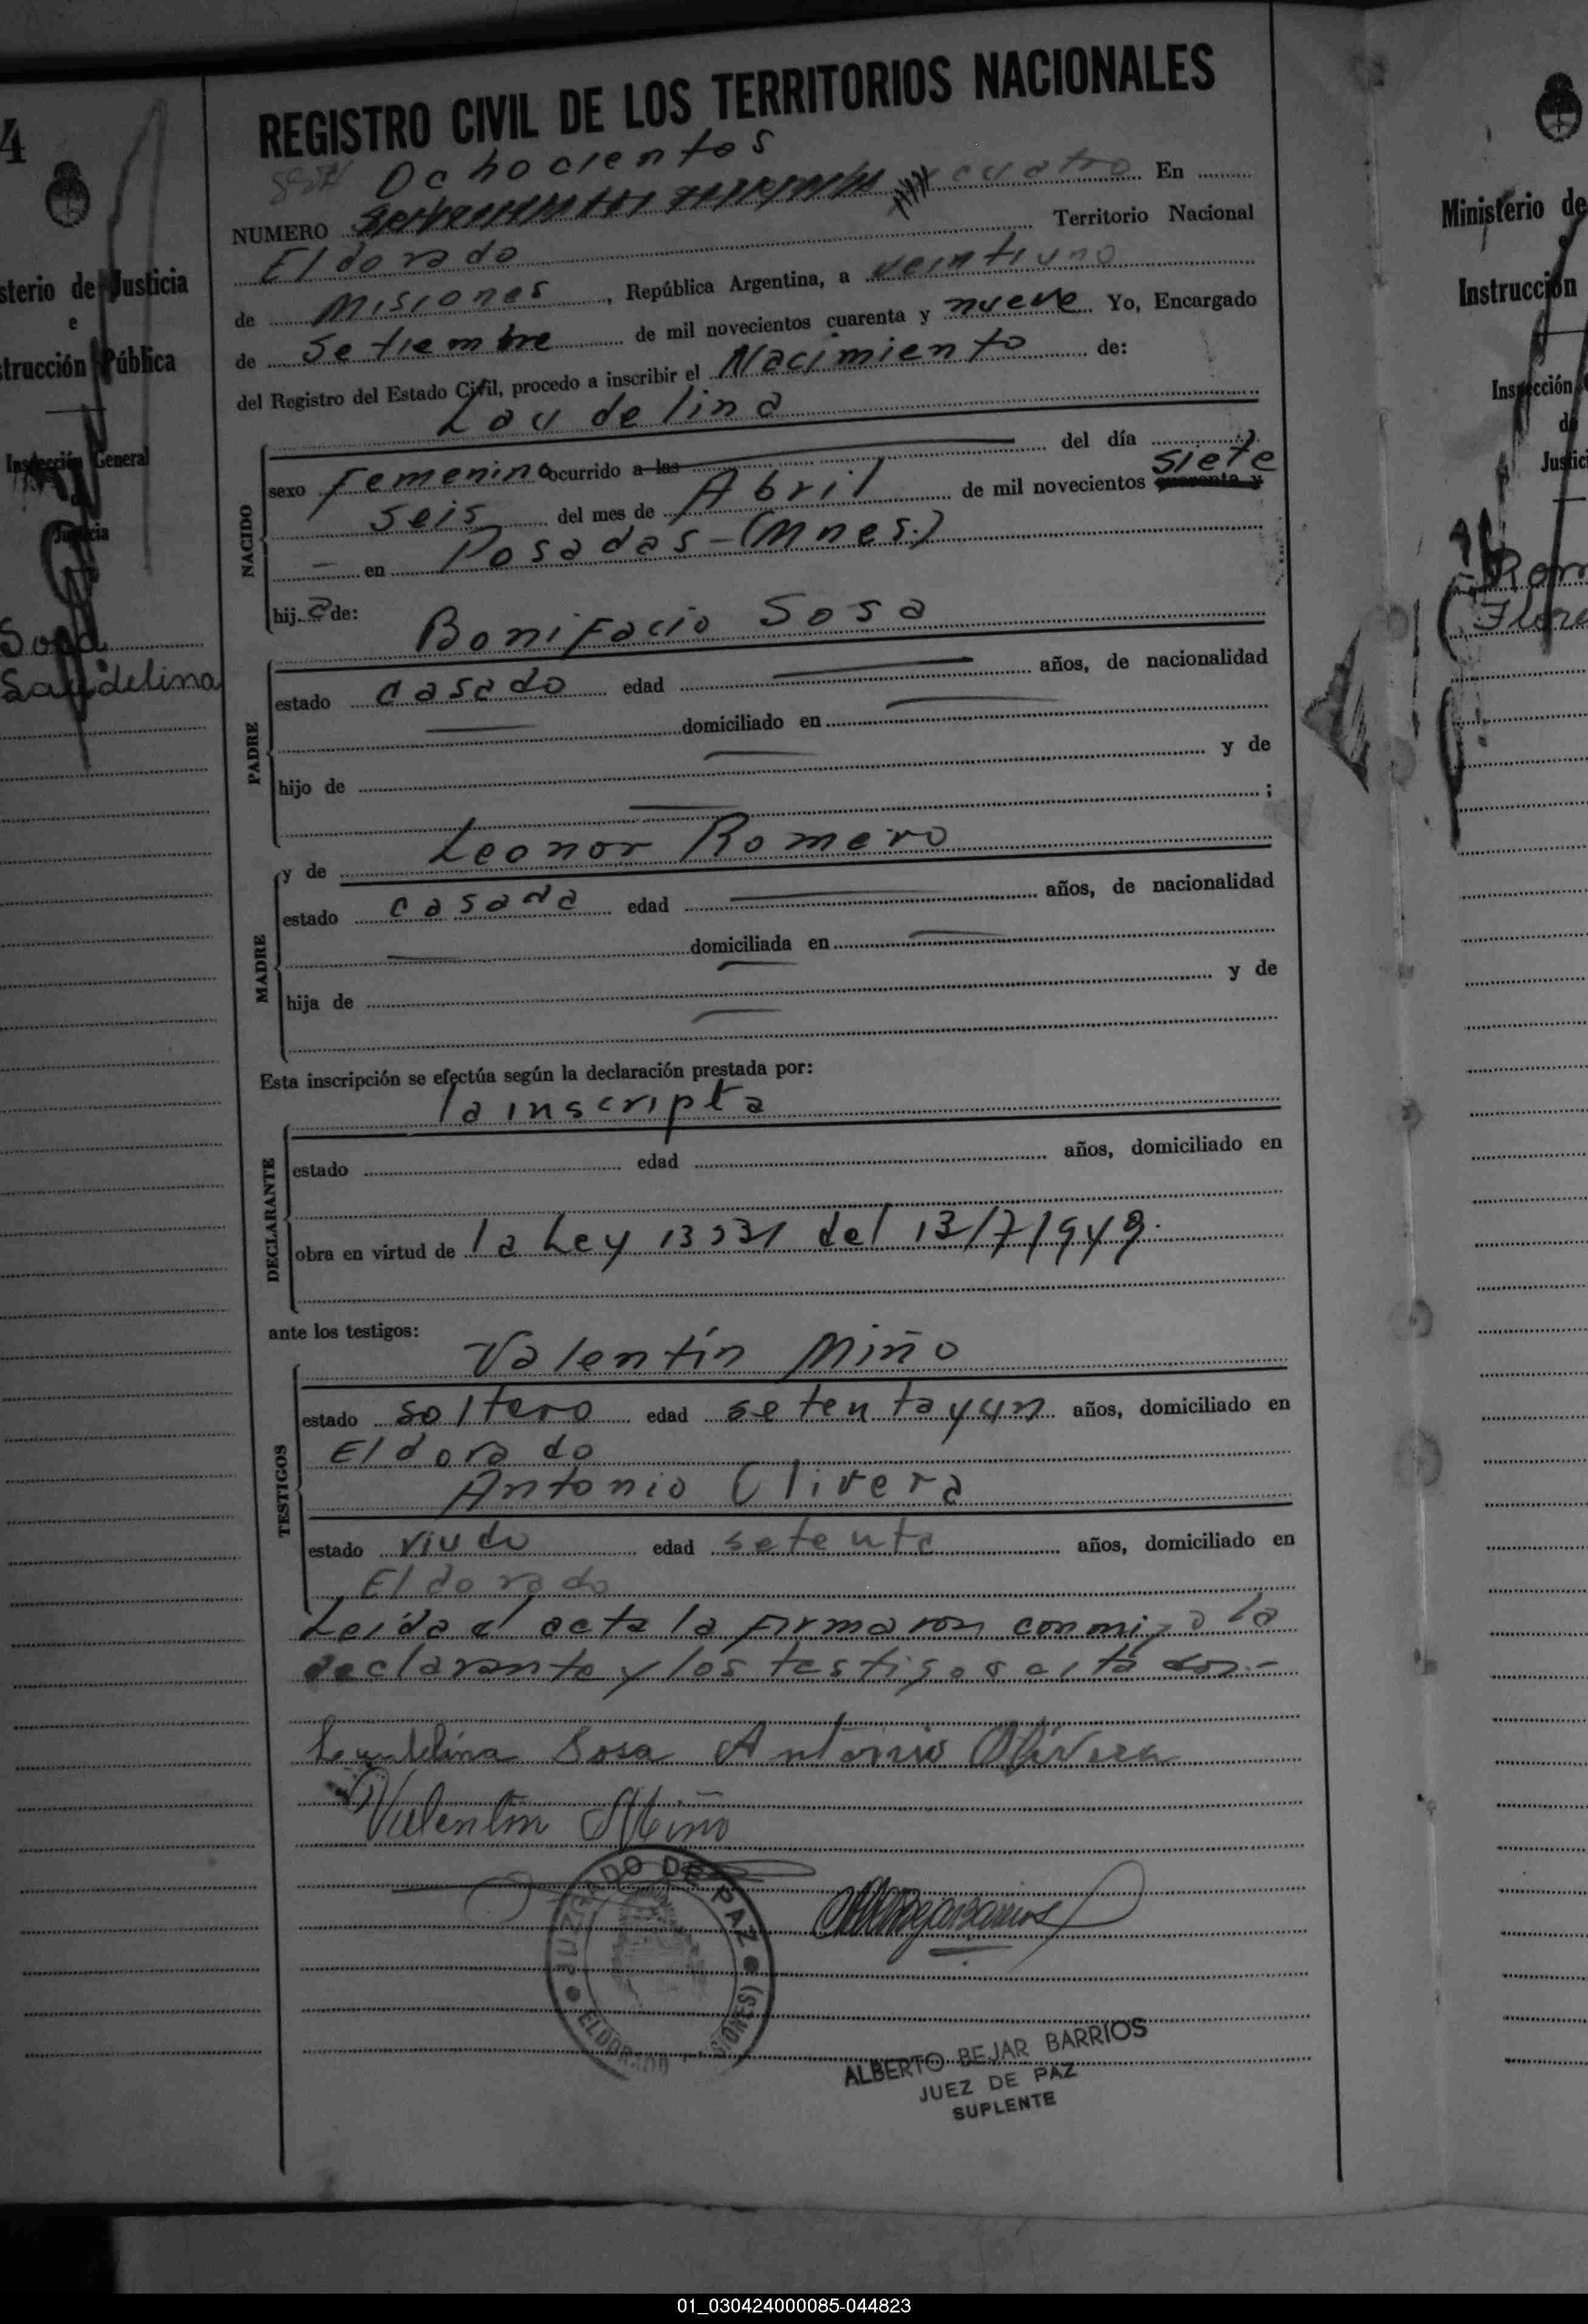 4
sterio de Justicia
e
strucción Pública
Inspección General
Justicia
Sosa
Laudelina
REGISTRO CIVIL DE LOS TERRITORIOS NACIONALES
Ochocientos
NUMERO cuatro En
Eldorado Territorio Nacional
de Misiones, República Argentina, a veintiuno
de Setiembre de mil novecientos cuarenta y nueve Yo, Encargado
del Registro del Estado Civil, procedo a inscribir el Nacimiento de:
Laudelina
NACIDO
sexo femenino ocurrido a las del día
seis del mes de Abril de mil novecientos cuarenta y siete
en Posadas - (Mnes.)
hija de:
Bonifacio Sosa
PADRE
estado casado edad años, de nacionalidad
domiciliado en
hijo de y de
;
y de Leonor Romero
MADRE
estado casada edad años, de nacionalidad
domiciliada en
hija de y de
Esta inscripción se efectúa según la declaración prestada por:
la inscripta
DECLARANTE
estado edad años, domiciliado en
obra en virtud de la Ley del 13/7/949.
ante los testigos:
Valentín Miño
TESTIGOS
estado soltero edad setenta y un años, domiciliado en
Eldorado
Antonio Olivera
estado viudo edad setenta años, domiciliado en
Eldorado
Leída el acta la firmaron conmigo la
declarante y los testigos citados.-
Laudelina Sosa Antonio Olivera
Valentin Miño
JUZGADO DE PAZ
ELDORADO (MISIONES)
ALBERTO BEJAR BARRIOS
JUEZ DE PAZ
SUPLENTE
Ministerio de
e
Instrucción
Inspección
de
Justic
Rom
Flore
01_030424000085-044823